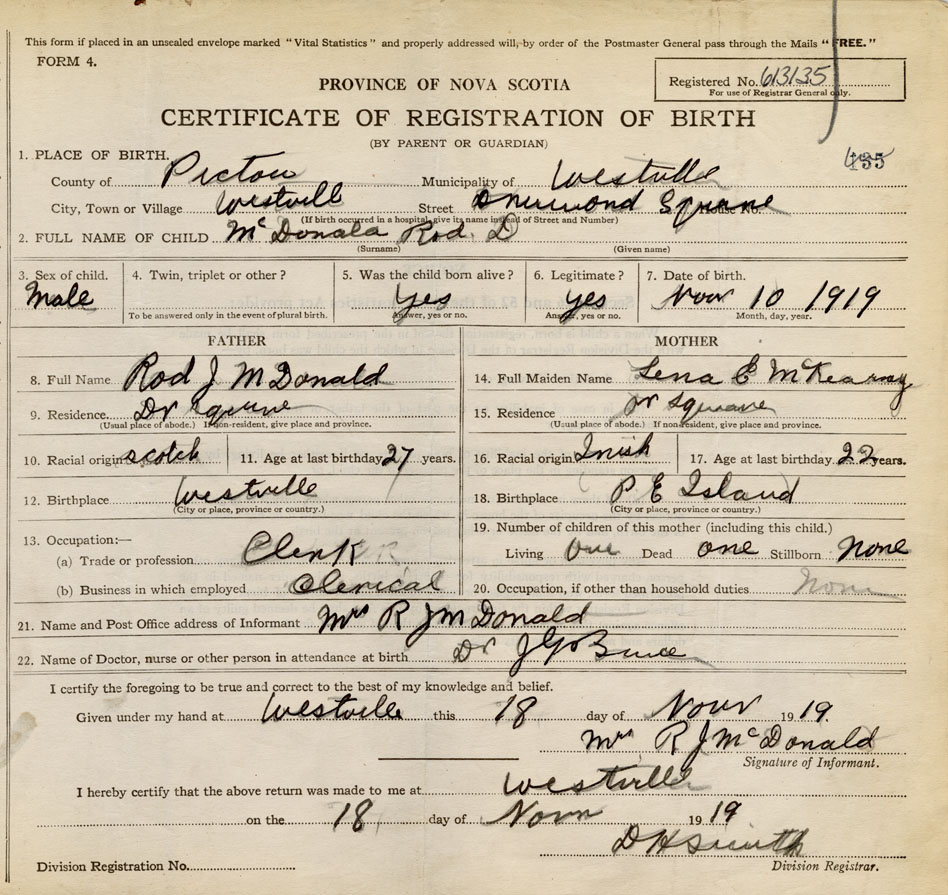 This form if placed in an unsealed envelope marked "Vital Statistics" and properly addressed will, by order of the Postmaster General pass through the Mails "FREE."
FORM 4.
Registered No. 613135
For use of Registrar General only.
PROVINCE OF NOVA SCOTIA
CERTIFICATE OF REGISTRATION OF BIRTH
(BY PARENT OR GUARDIAN)
135
1. PLACE OF BIRTH.
County of Pictou Municipality of Westville
City, Town or Village Westvill Street Drummond Square House No.
(If birth occurred in a hospital, give its name instead of Street and Number)
2. FULL NAME OF CHILD McDonald Rod. D
(Surname) (Given name)
3. Sex of child. 4. Twin, triplet or other? 5. Was the child born alive? 6. Legitimate? 7. Date of birth.
Male Yes yes Novr 10 1919
To be answered only in the event of plural birth. Answer, yes or no. Answer, yes or no. Month, day, year.
FATHER MOTHER
8. Full Name Rod J McDonald 14. Full Maiden Name Lena E McKearney
9. Residence Dr Square 15. Residence Dr Square
(Usual place of abode.) If non-resident, give place and province. (Usual place of abode.) If non-resident, give place and province.
10. Racial origin scotch 11. Age at last birthday 27 years. 16. Racial origin Irish 17. Age at last birthday 22 years.
12. Birthplace Westville 18. Birthplace P E Island
(City or place, province or country.) (City or place, province or country.)
13. Occupation:— 19. Number of children of this mother (including this child.)
(a) Trade or profession Clerk Living One Dead one Stillborn None
(b) Business in which employed Clerical 20. Occupation, if other than household duties None
21. Name and Post Office address of Informant Mrs R J McDonald
22. Name of Doctor, nurse or other person in attendance at birth Dr
I certify the foregoing to be true and correct to the best of my knowledge and belief.
Given under my hand at Westville this 18 day of Novr 19 19.
Mrs R J McDonald
Signature of Informant.
I hereby certify that the above return was made to me at Westville
on the 18 day of Novr 19 19
D H Smith
Division Registration No. Division Registrar.